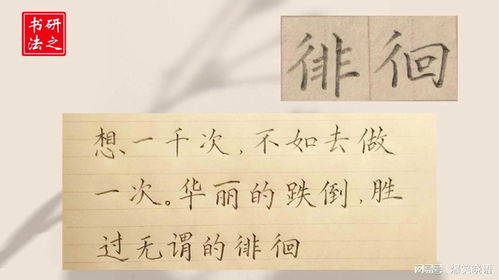 研之
书法
徘徊
想一千次,不如去做
一次。华丽的跌倒,胜
过无谓的徘徊